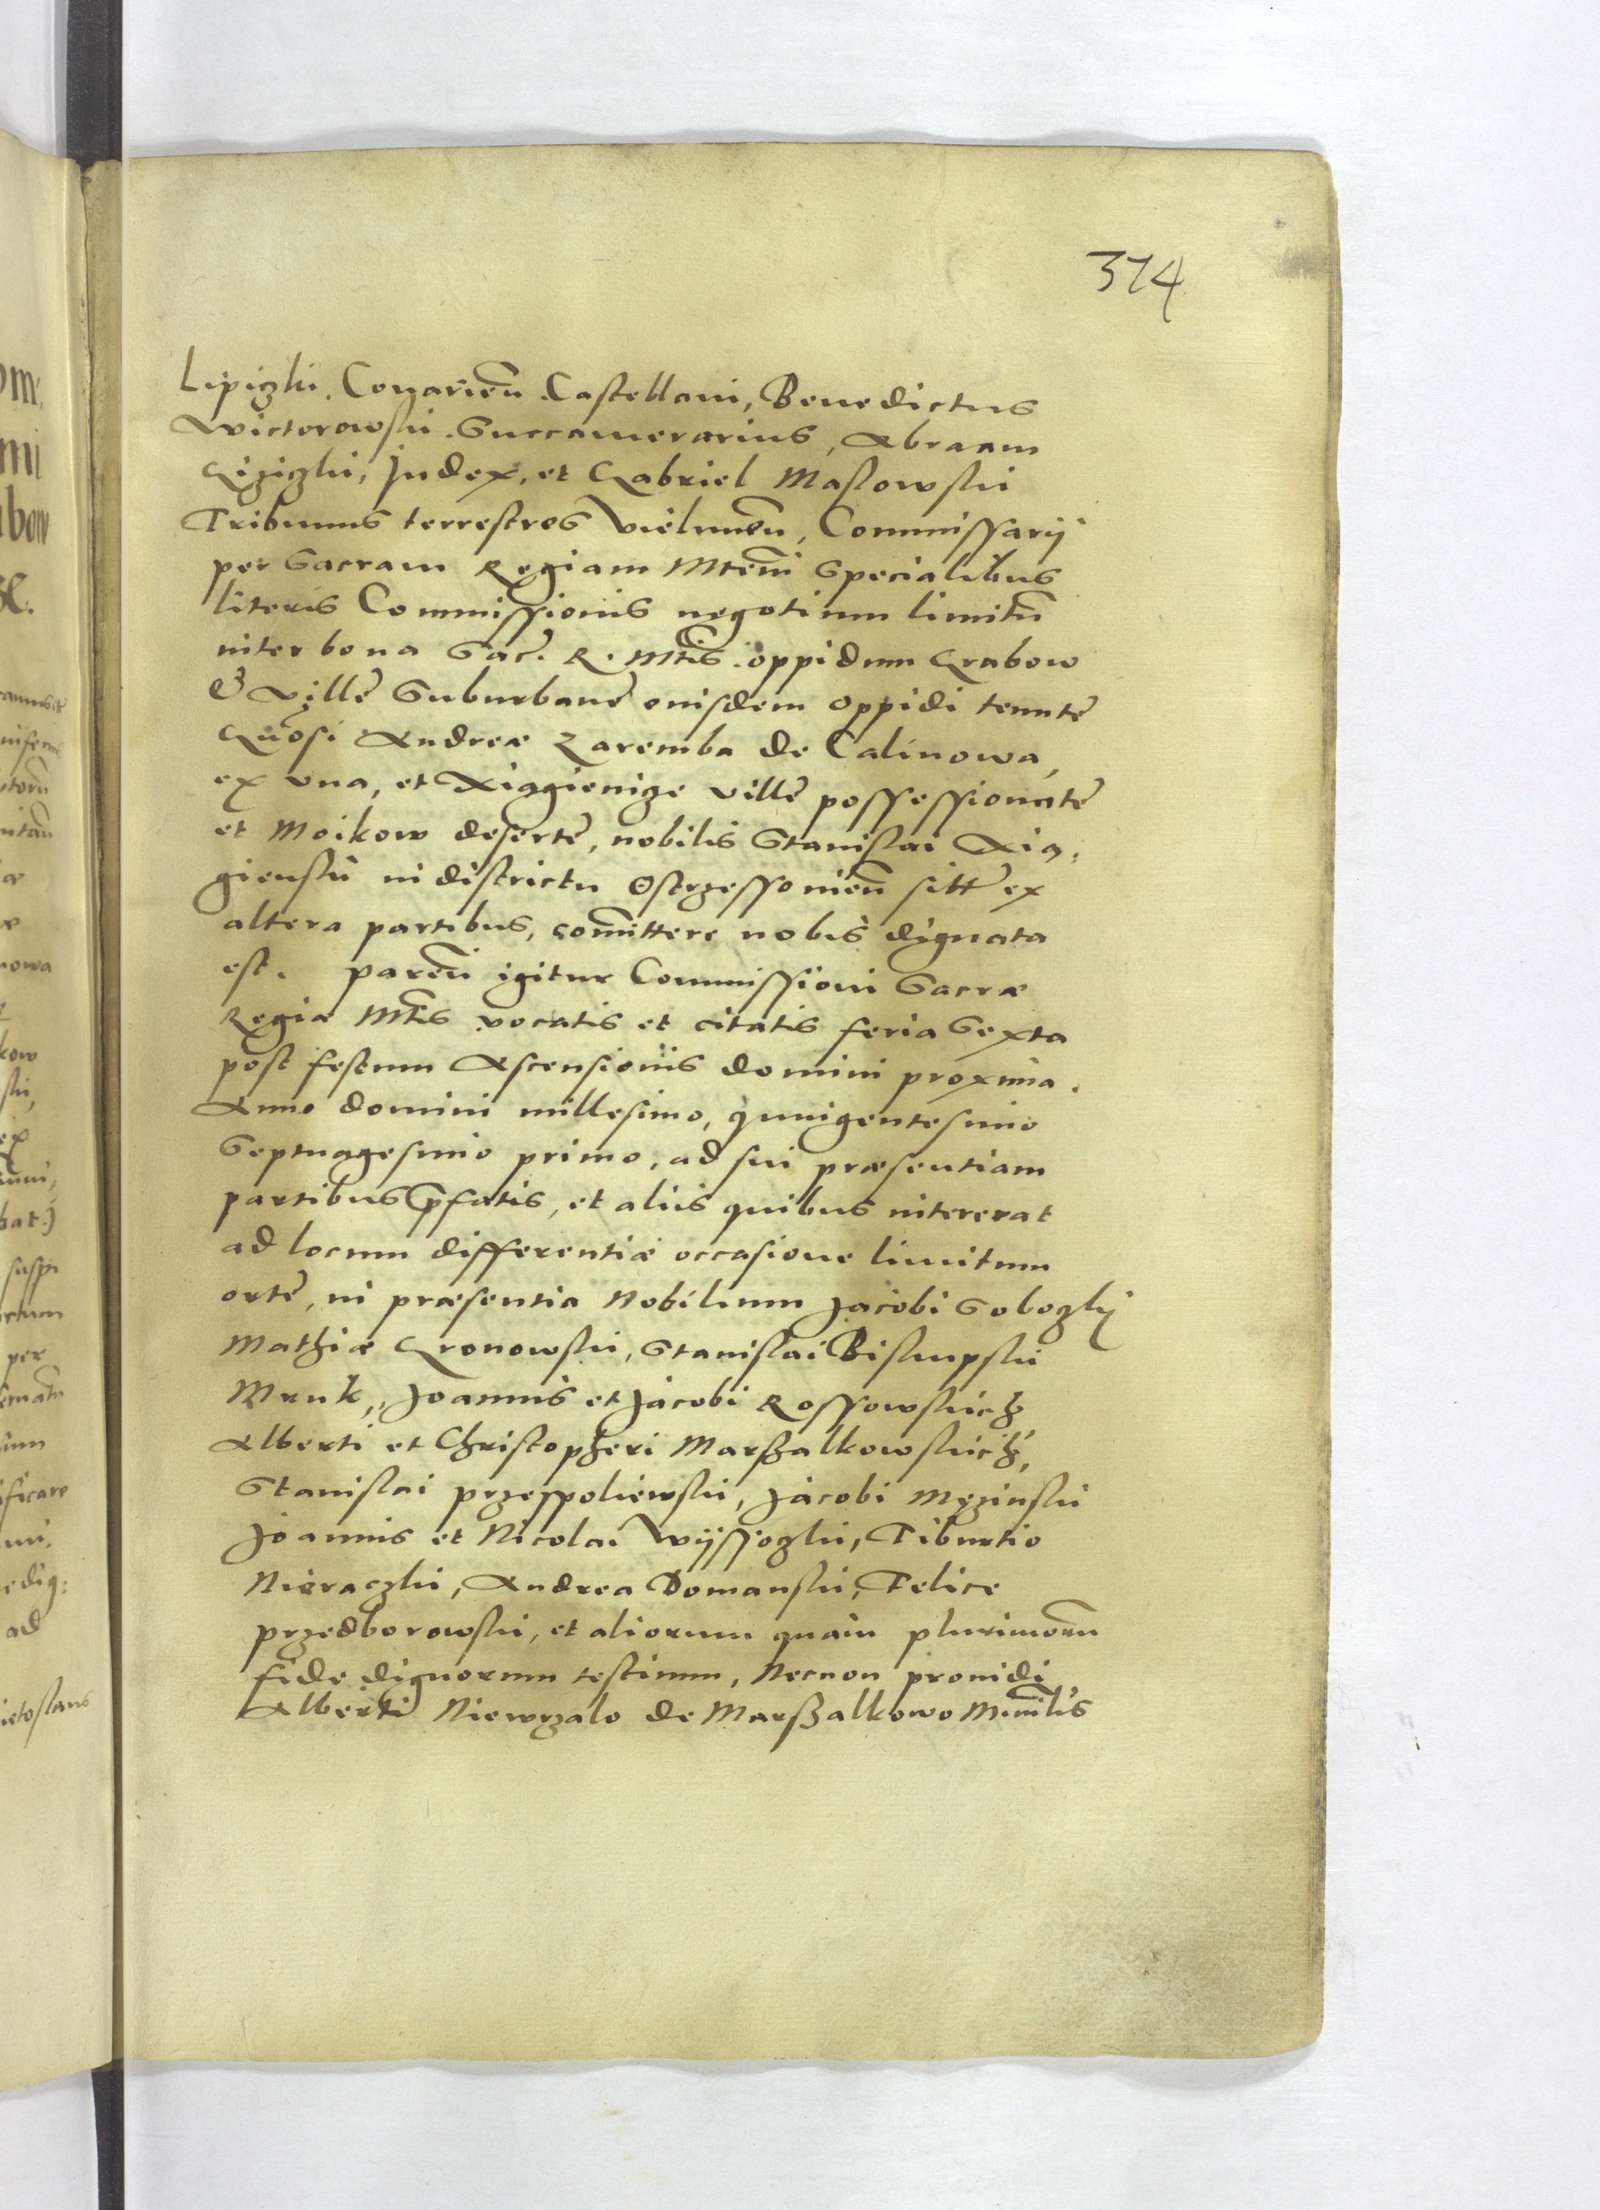 374
Lipiczki. Conarien̄ Castellani, Benedictus
Wictorowski Succamerarius, Abraam
Giziczki, Judex, et Gabriel Maslowski
Tribunus terrestres Vielunen̄, Commissarij
per Sacram Regiam Mtem̄ specialibus
literis Commissionis negotium limitū
inter bona Sac. R. Mtis. oppidum Grabow
& villę suburbanę euisdem oppidi tenutę
Gn̄osi Andreæ Zaremba de Calinowa,
ex vna, et Xiaggienize villę possessionatę
et Moikow desertę, nobilis Stanislai Xią,
gienski in districtu Ostrzessonien̄ sitt ex
altera partibus, com̄ittere nobis dignata
est. paren̄ igitur Commissioni Sacræ
Regiæ Mtis vocatis et citatis feria Sexta
post festum Ascensionis domini proxima.
Anno domini millesimo, quingentesimo
Septuagesimo primo, ad sui præsentiam
partibus p̄fatis, et aliis quibus intererat
ad locum differentiæ occasione limitum
ortę, in præsentia Nobilium Jacobi Sobozkij
Mathiæ Gronowski, Stanislai Biskupski
Mruk,, Joannis et Jacobi Rossowskich
Alberti et Christopheri Marßalkowskich,
Stanislai przespoliewski, Jacobi Męzinski
Joannis et Nicolai Wÿssoczki, Tiburtio
Nieraczki, Andrea Domanski, Felice
przedborowski, et aliorum quam plurimorū
fide dignorum testium, Necnon prouidi
Alberti Niewrzalo de Marßalkowo Min̄lis